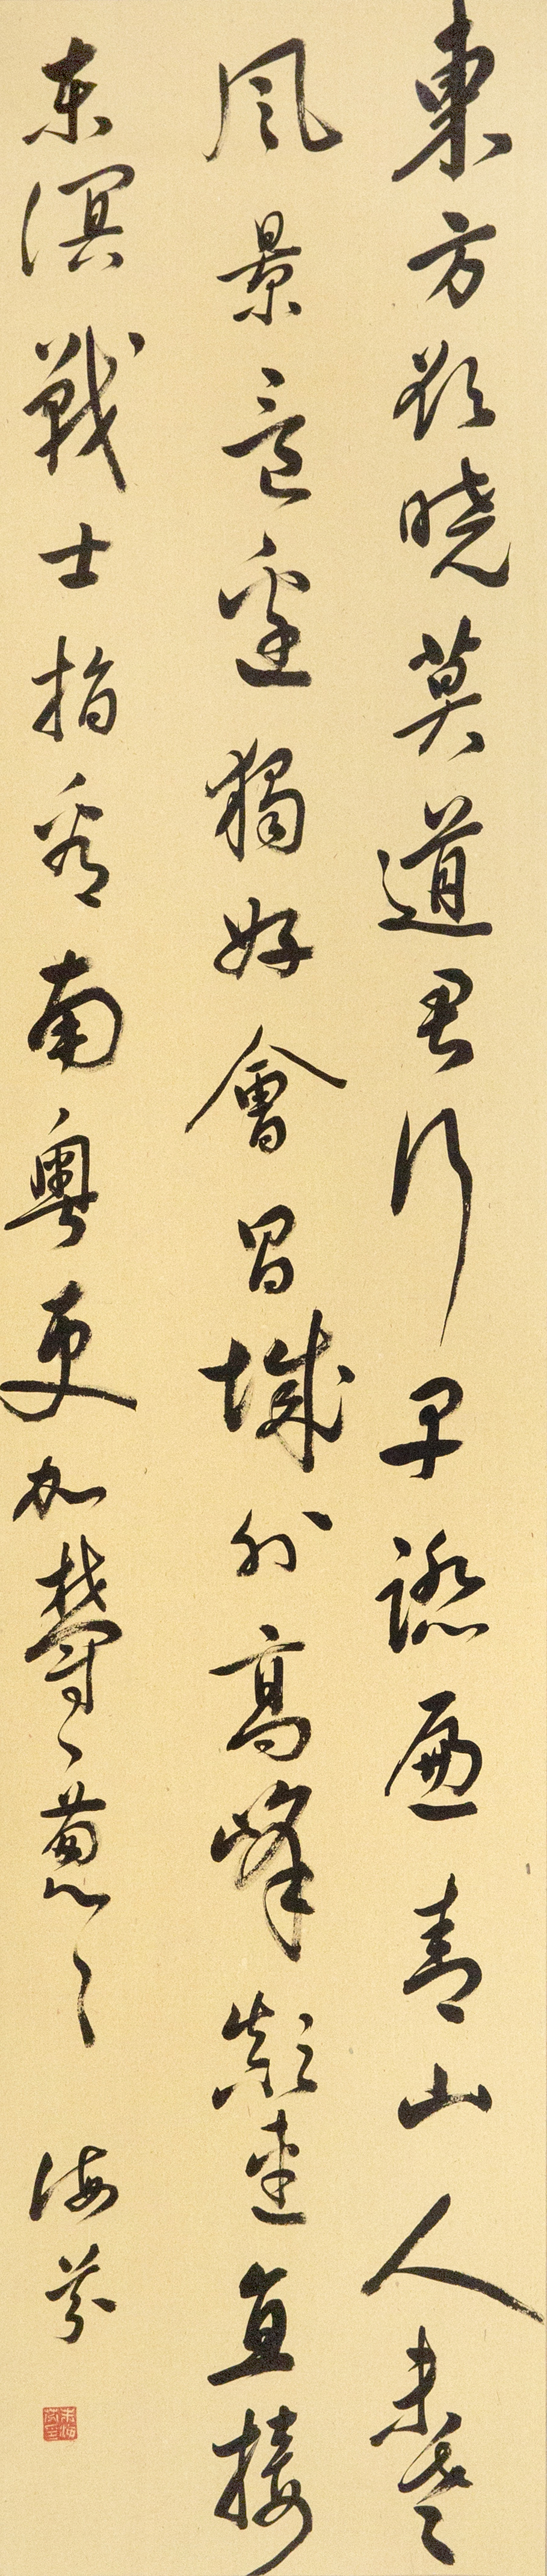 東方欲曉莫道君行早踏遍青山人未老
風景這邊獨好會昌城外高峰顛連直接
東溟戰士指看南粵更加鬱々葱々 海芬